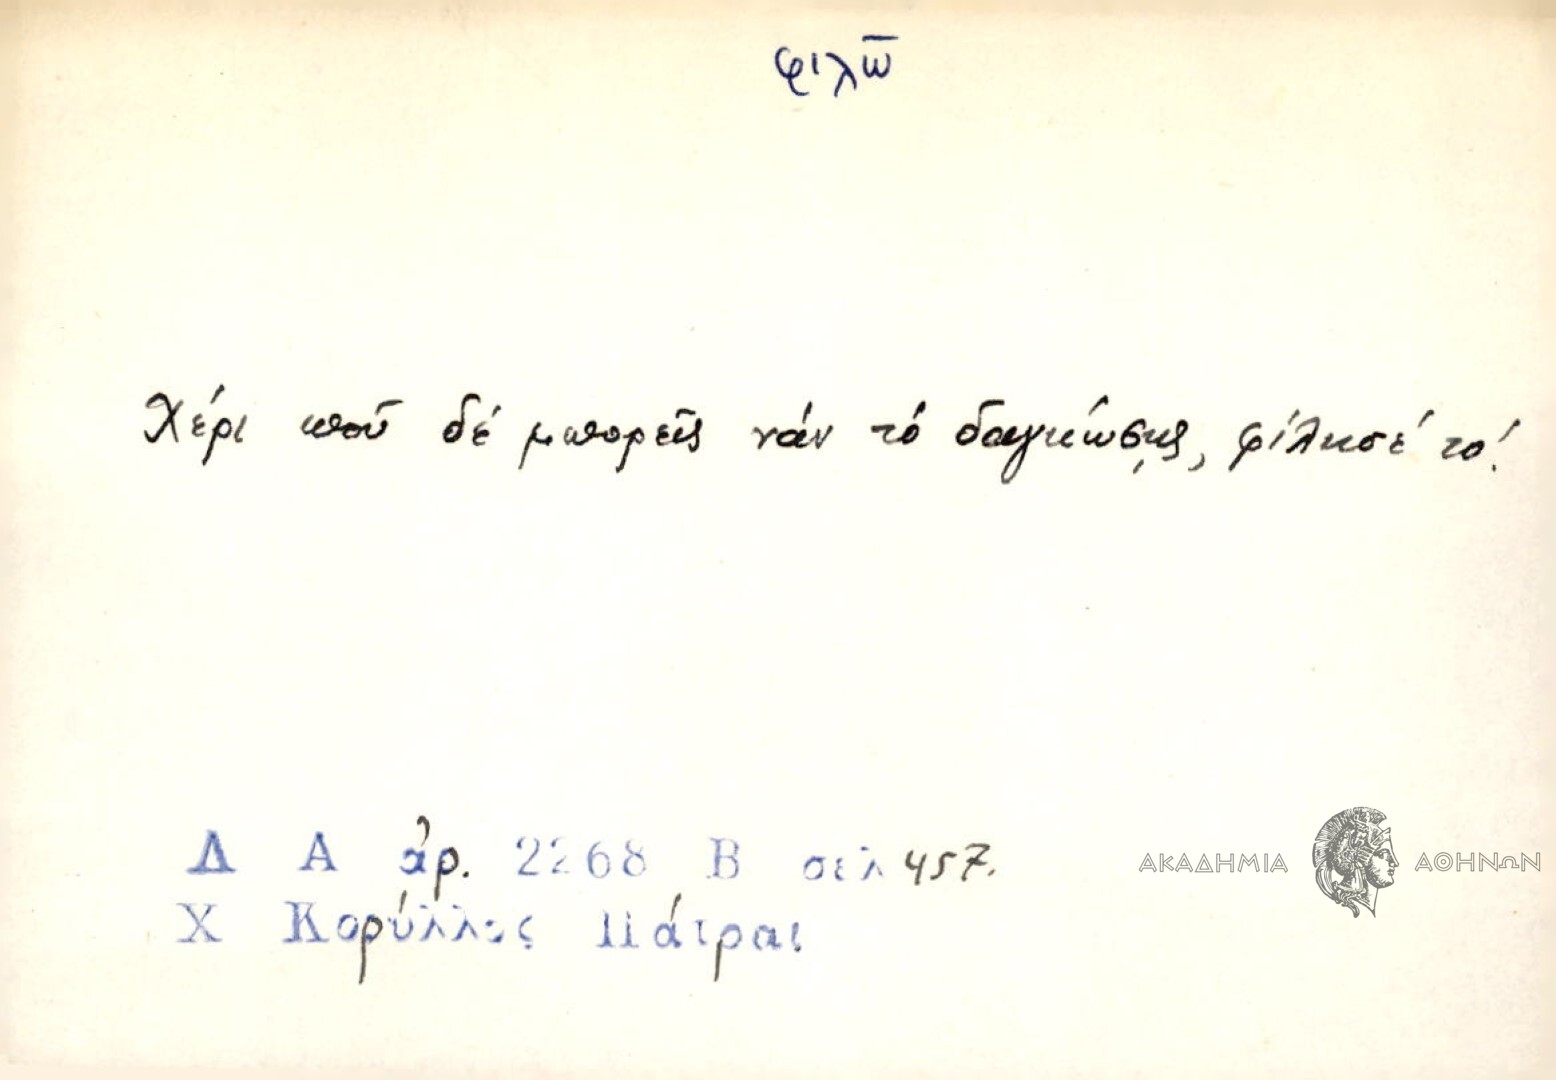 φιλῶ
Χέρι ποῦ δέ μπορεῖς νάν τό δαγκώσῃς, φίλησέ το!
Δ Α ἀρ. 2268 Β σελ 457.
Χ Κορύλλος Πάτραι
ΑΚΑΔΗΜΙΑ ΑΘΗΝΩΝ